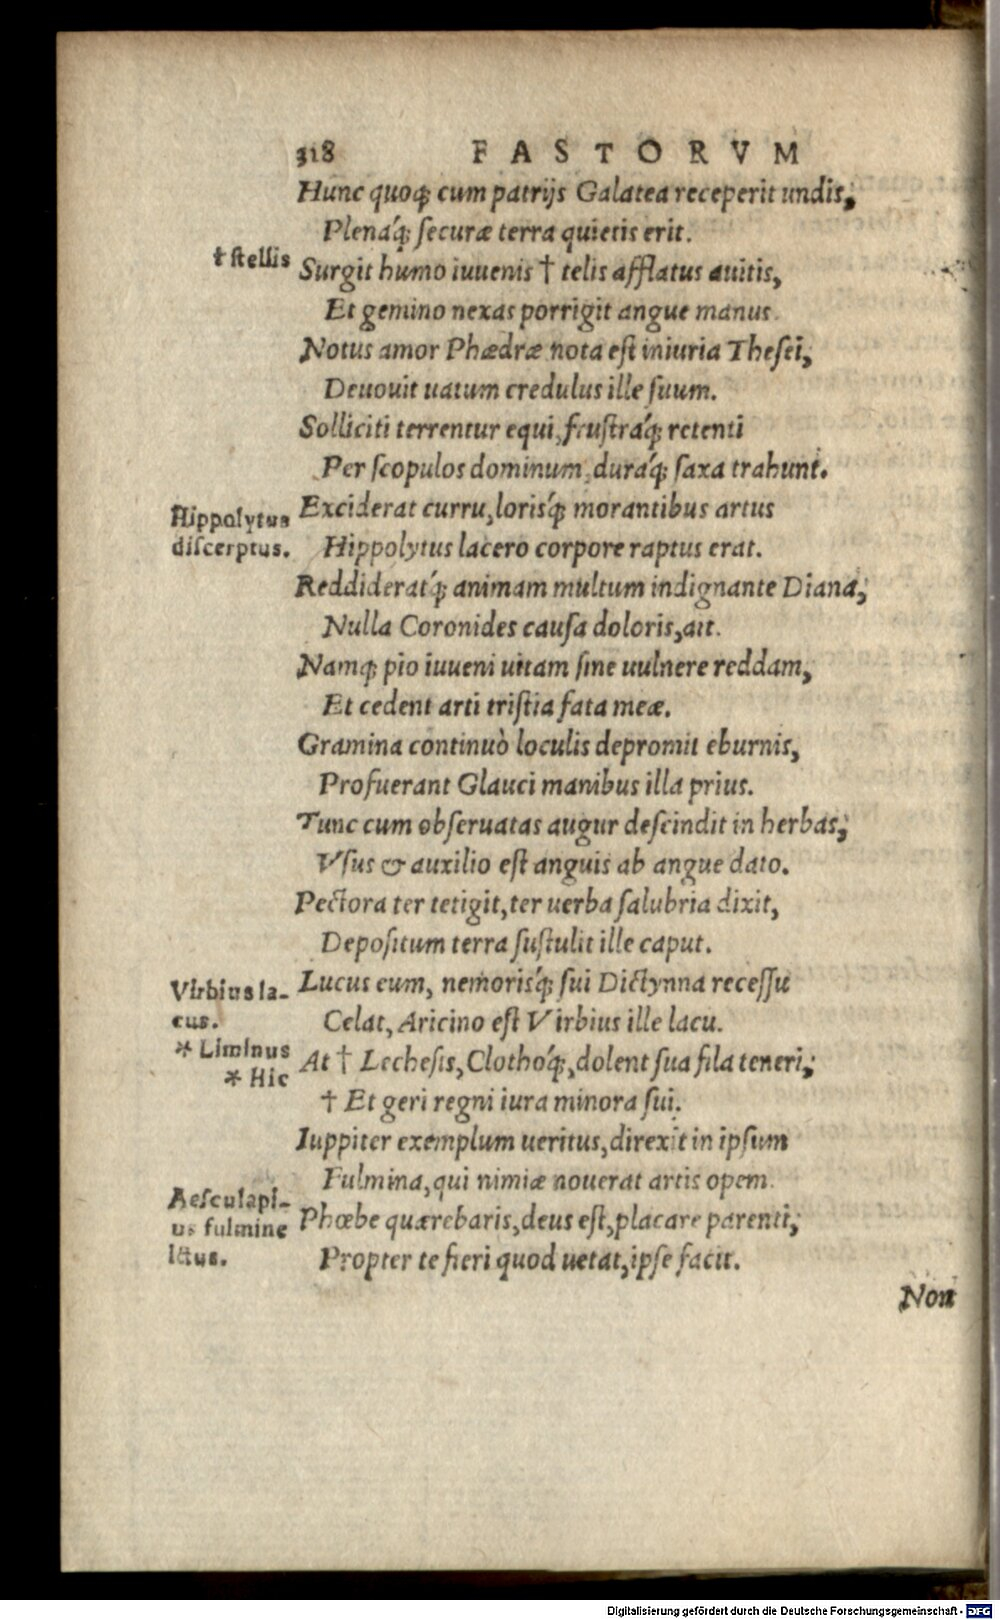 318 FASTORVM
Hunc quoq; cum patrijs Galatea receperit undis,
Plenáq; securæ terra quietis erit.
† stellis
Surgit humo iuuenis † telis afflatus auitis,
Et gemino nexas porrigit angue manus.
Notus amor Phædræ, nota est iniuria Thesei,
Deuouit uatum credulus ille suum.
Solliciti terrentur equi, frustráq; retenti
Per scopulos dominum, duráq; saxa trahunt.
Hippolytus
discerptus.
Exciderat curru, lorisq́; morantibus artus
Hippolytus lacero corpore raptus erat.
Reddideratq́; animam multum indignante Diana,
Nulla Coronides causa doloris, ait.
Namq; pio iuueni uitam sine uulnere reddam,
Et cedent arti tristia fata meæ.
Gramina continuò loculis depromit eburnis,
Profuerant Glauci manibus illa prius.
Tunc cum obseruatas augur descindit in herbas,
Vsus & auxilio est anguis ab angue dato.
Pectora ter tetigit, ter uerba salubria dixit,
Depositum terra sustulit ille caput.
Virbius la-
cus.
Lucus eum, nemorisq́; sui Dictynna recessu
Celat, Aricino est Virbius ille lacu.
* Liminus
* Hic
At † Lechesis, Clothóq;, dolent sua fila teneri,
† Et geri regni iura minora sui.
Iuppiter exemplum ueritus, direxit in ipsum
Fulmina, qui nimiæ nouerat artis opem.
Aesculapi-
us fulmine
ictus.
Phœbe quærebaris, deus est, placare parenti,
Propter te fieri quod uetat, ipse facit.
Non
Digitalisierung gefördert durch die Deutsche Forschungsgemeinschaft - DFG